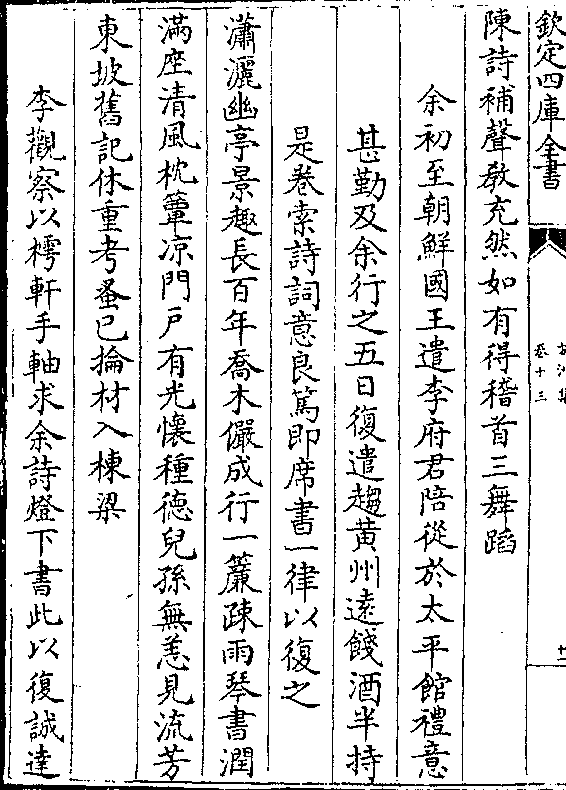 欽定四庫全書
卷十三
陳詩補聲教充然如有得稽首三舞蹈
余初至朝鮮國王遣李府君陪從於太平館禮意
甚勤及余行之五日復遣趨黃州遠餞酒半持
是卷索詩詞意良篤即席書一律以復之
瀟灑幽亭景趣長百年喬木儼成行一簾疎雨琴書潤
滿座清風枕簟凉門戶有光懷種德兒孫無恙見流芳
東坡舊記休重考蚤已掄材入棟梁
李觀察以樗軒手軸求余詩燈下書此以復誠達